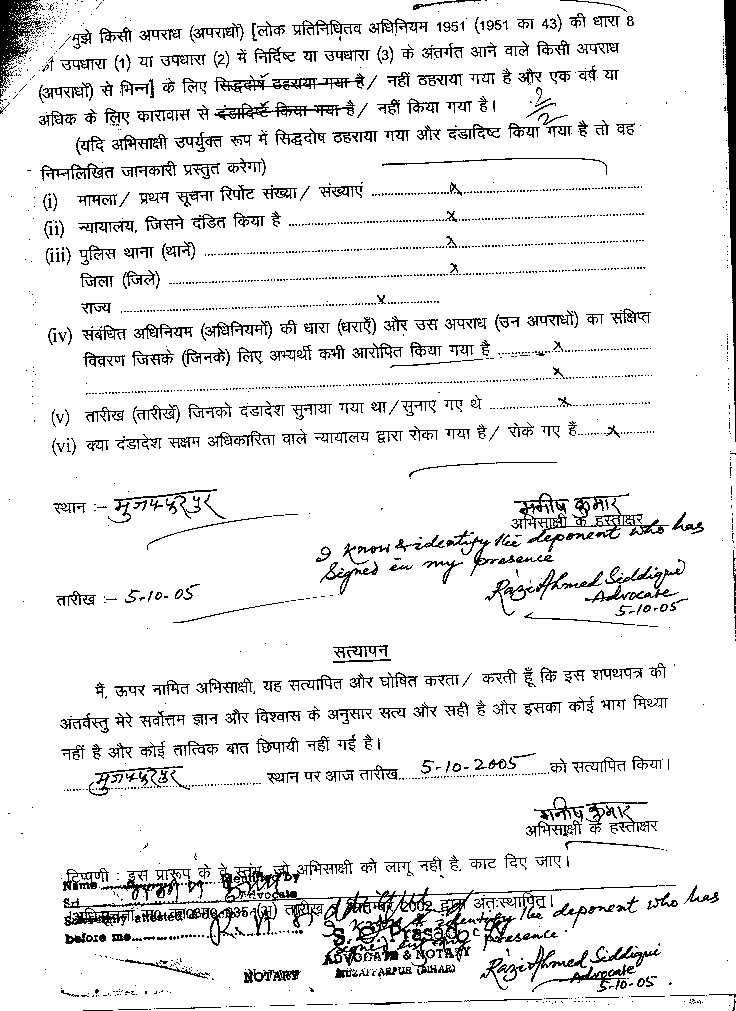 मुझे किसी अपराध (अपराधों) [लोक प्रतिनिधितव अधिनियम 1951 (1951 का 43) की धारा 8
उपधारा (1) या उपधारा (2) में निर्दिष्ट या उपधारा (3) के अंतर्गत आने वाले किसी अपराध
(अपराधों) से भिन्न] के लिए सिद्धदोष ठहराया गया है / नहीं ठहराया गया है और एक वर्ष या
अधिक के लिए कारावास से दंडादिष्टि किया गया है / नहीं किया गया है।
(यदि अभिसाक्षी उपर्युक्त रूप में सिद्धदोष ठहराया गया और दंडादिष्ट किया गया है तो वह
निम्नलिखित जानकारी प्रस्तुत करेगा)
(i) मामला / प्रथम सूचना रिर्पोट संख्या / संख्याएं ........ x ........
(ii) न्यायालय, जिसने दंडित किया है ........ x ........
(iii) पुलिस थाना (थानें) ........ x ........
जिला (जिले) ........ x ........
राज्य ........ x ........
(iv) संबंधित अधिनियम (अधिनियमों) की धारा (धराएँ) और उस अपराध (उन अपराधों) का संक्षिप्त
विवरण जिसके (जिनके) लिए अभ्यर्थी कभी आरोपित किया गया है ........ x ........
........ x ........
(v) तारीख (तारीखें) जिनको दंडादेश सुनाया गया था / सुनाए गए थे ........ x ........
(vi) क्या दंडादेश सक्षम अधिकारिता वाले न्यायालय द्वारा रोका गया है / रोके गए हैं ........ x ........
स्थान :– मुजफ्फरपुर
मनीष कुमार
अभिसाक्षी के हस्ताक्षर
I know & identify the deponent who has
signed in my presence
Razi Ahmed Siddiqui
Advocate
5-10-05
तारीख :– 5-10-05
सत्यापन
मैं, ऊपर नामित अभिसाक्षी, यह सत्यापित और घोषित करता / करती हूँ कि इस शपथपत्र की
अंतर्वस्तु मेरे सर्वोत्तम ज्ञान और विश्वास के अनुसार सत्य और सही है और इसका कोई भाग मिथ्या
नहीं है और कोई तात्विक बात छिपायी नहीं गई है।
मुजफ्फरपुर स्थान पर आज तारीख 5-10-2005 को सत्यापित किया।
मनीष कुमार
अभिसाक्षी के हस्ताक्षर
टिप्पणी : इस प्रारूप के वे स्तंभ, जो अभिसाक्षी को लागू नहीं है, काट दिए जाए।
Name identified by
Sri Advocate
तारीख 2002 द्वारा अंतःस्थापित।
before me
I know & identify the deponent who has
signed in my presence.
S. C. Prasad
ADVOCATE & NOTARY
MUZAFFARPUR (BIHAR)
NOTARY
Razi Ahmed Siddiqui
Advocate
5-10-05